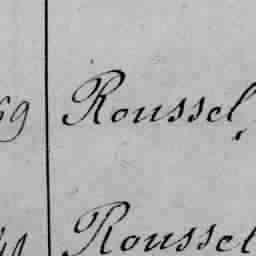 69 Roussel,
Roussel